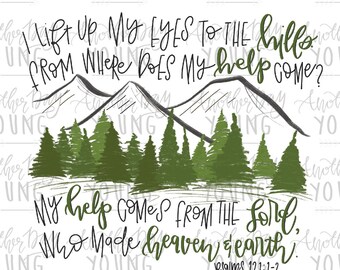 I LIFT UP MY EYES TO THE hills
FROM WHERE DOES MY help COME?
MY help COMES FROM THE Lord,
WHO MADE heaven & earth.
psalms 121:1-2